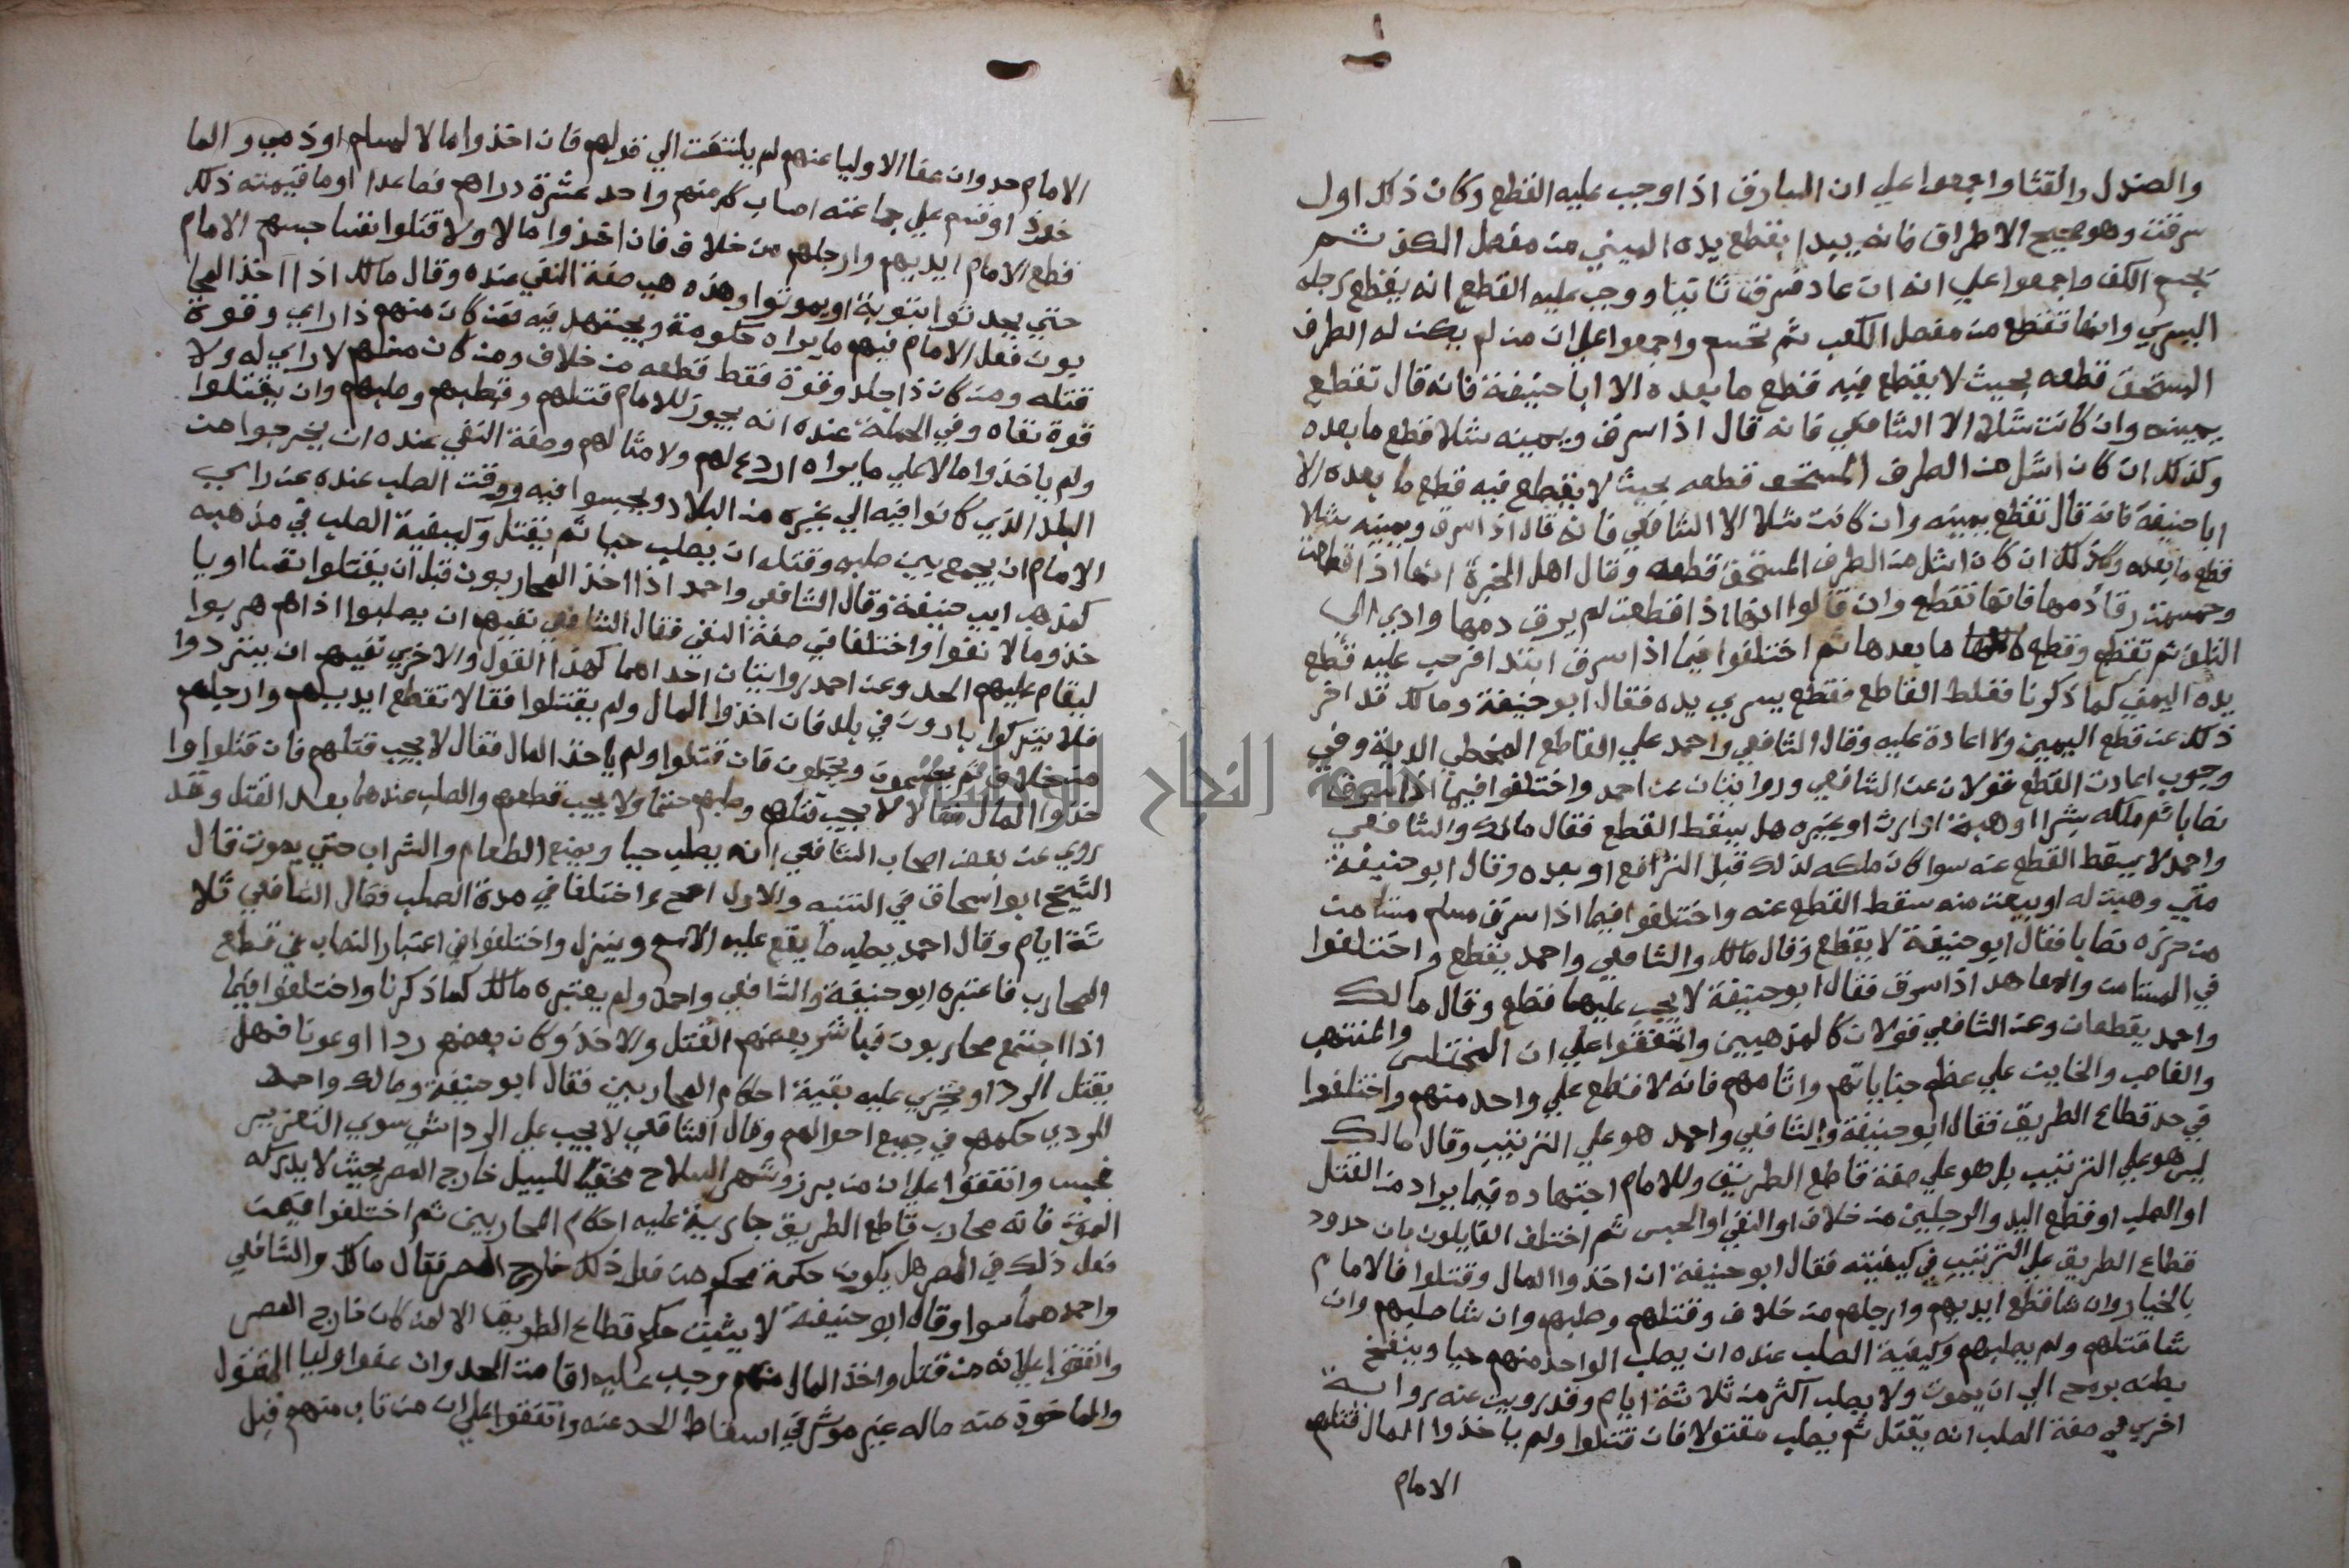 والصندل والقثا واجمعوا علي ان السارق اذا وجب عليه القطع وكان ذلك اول
سرقته وهو صحيح الاطراق فانه يبدا بقطع يده اليمني من مفصل الكف ثم
يحسم الكف واجمعوا علي انه ان عاد فسرق ثانيا ووجب عليه القطع انه يقطع رجله
اليسري وانها تقطع من مفصل الكعب ثم تحسم واجمعوا علي ان من لم يكن له الطرف
المستحق قطعه بحيث لا يقطع فيه قطع ما بعده الا ابا حنيفة فانه قال تقطع
يمينه وان كانت شلا الا الشافعي فانه قال اذا سرق ويمينه شلا قطع ما بعده
وكذلك ان كان اشل من الطرف المستحق قطعه بحيث لا يقطع فيه قطع ما بعده الا
ابا حنيفة فانه قال تقطع يمينه وان كانت شلا الا الشافعي فانه قال اذا سرق ويمينه شلا
قطع ما بعده وكذلك ان كان اشل من الطرف المستحق قطعه وقال اهل الخبرة انها اذا قطعت
وحسمت رقا دمها فانها تقطع وان قالوا انها اذا قطعت لم يرق دمها وادي الي
التلف ثم تقطع وقطع ما بعدها ثم اختلفوا فيما اذا سرق ابتدا فوجب عليه قطع
يده اليمني كما ذكرنا فغلط القاطع فقطع يسري يده فقال ابو حنيفة ومالك قد اخر
ذلك عن قطع اليمين ولا اعادة عليه وقال الشافعي واحمد علي القاطع المخطي الدية وفي
وجوب اعادت القطع قولان عن الشافعي وروايتان عن احمد واختلفوا فيما اذا سرق
نصابا ثم ملكه بشرا او هبة او ارث او غيره هل يسقط القطع فقال مالك والشافعي
واحمد لا يسقط القطع عنه سوا كان ملكه لذلك قبل الترافع او بعده وقال ابو حنيفة
متي وهبت له او بيعت منه سقط القطع عنه واختلفوا فيما اذا سرق مسلم مستامن
من حرزه نصابا فقال ابو حنيفة لا يقطع وقال مالك والشافعي واحمد يقطع واختلفوا
في المستامن والمعاهد اذا سرق فقال ابو حنيفة لا يجب عليهما قطع وقال مالك
واحمد يقطعان وعن الشافعي قولان كالمذهبين واتفقوا علي ان المختلس والمنتهب
والغاصب والخاين علي عظم جناياتهم واثامهم فانه لا قطع علي واحد منهم واختلفوا
في حد قطاع الطريق فقال ابو حنيفة والشافعي واحمد هو علي الترتيب وقال مالك
ليس هو علي الترتيب بل هو علي صفة قاطع الطريق وللامام اجتهاده فيما يراد من القتل
او الصلب او قطع اليد والرجلين من خلاف او النفي او الحبس ثم اختلف القايلون بان حدود
قطاع الطريق علي الترتيب في كيفيته فقال ابو حنيفة ان اخذوا المال وقتلوا فالامام
بالخيار وان شا قطع ايديهم وارجلهم من خلاف وقتلهم وصلبهم وان شا صلبهم وان
شا قتلهم ولم يصلبهم وكيفية الصلب عنده ان يصلب الواحد منهم حيا وينفخ
بطنه برمح الي ان يموت ولا يصلب اكثر من ثلاثة ايام وقد رويت عنه رواية
اخري في صفة الصلب انه يقتل ثم يصلب مقتولا فان قتلوا ولم ياخذوا المال قتلهم
الامام
الامام حد وان عفا الاوليا عنهم لم يلتفت الي قولهم فان اخذوا مالا لمسلم او ذمي والما
خوذ او قسم علي جماعته اصاب كل منهم واحد عشرة دراهم فصاعدا او ما قيمته ذلك
قطع الامام ايديهم وارجلهم من خلاف فان اخذوا مالا ولا قتلوا نفسا حبسهم الامام
حتي يحدثوا بتوبة او يموتوا وهذه هي صفة النفي عنده وقال مالك اذا اخذ المحا
بون فعل الامام فيهم ما يراه حكومة ويجتهد فيه فمن كان منهم ذا راي وقوة
قتله ومن كان ذا جلد وقوة فقط قطعه من خلاف ومن كان منهم لا راي له ولا
قوة نفاه وفي الجملة عنده انه يجوز للامام قتلهم وقطعهم وصلبهم وان يقتلوا
ولم ياخذوا مالا علي ما يراه اردع لهم ولامثالهم وصفة النفي عنده ان يخرجوا من
البلد الذي كانوا فيه الي غيره من البلاد ويحبسوا فيه ووقت الصلب عنده عن راي
الامام ان يجمع بين صلبه وقتله ان يصلب حيا ثم يقتل وكيفية الصلب في مذهبه
كمذهب ابي حنيفة وقال الشافعي واحمد اذا اخذ المحاربون قبل ان يقتلوا نفسا او يا
خذو مالا نفوا واختلفا في صفة النفي فقال الشافعي نفيهم ان يصلبوا اذا هم هربوا
ليقام عليهم الحد وعن احمد روايتان احداهما كهذا القول والاخري نفيهم ان يشردوا
فلا يتركوا يادون في بلد فان اخذوا المال ولم يقتلوا فقالا تقطع ايديهم وارجلهم
من خلاف ثم يحسمون ويخلون فان قتلوا ولم ياخذ المال فقال لا يجب قتلهم فان قتلوا وا
خذوا المال فقالا لا يجب قتلهم وصلبهم حتما ولا يجب قطعهم والصلب عندهما بعد القتل وقد
روي عن بعض اصحاب الشافعي انه يصلب حيا ويمنع الطعام والشراب حتي يموت قال
الشيخ ابو اسحاق في التنبيه والاول اصح واختلفا في مدة الصلب فقال الشافعي ثلا
ثة ايام وقال احمد يصلب ما يقع عليه الاسم وينزل واختلفوا في اعتبار النصاب في قطع
المحارب فاعتبره ابو حنيفة والشافعي واحمد ولم يعتبره مالك كما ذكرنا واختلفوا فيما
اذا اجتمع محاربون فباشر بعضهم القتل والاخذ وكان بعضهم ردا او عونا فهل
يقتل الردا ويجزي عليه بقية احكام المحاربين فقال ابو حنيفة ومالك واحمد
للردي حكمهم في جميع احوالهم وقال الشافعي لا يجب علي الردا شي سوي التعزير
فحسب واتفقوا علي ان من برز وشهر السلاح مخيفا للسبيل خارج المصر بحيث لا يدركه
الغوث فانه محارب قاطع الطريق جارية عليه احكام المحاربين ثم اختلفوا فيمن
فعل ذلك في المصر هل يكون حكمه حكم من فعل ذلك خارج المصر فقال مالك والشافعي
واحمد هما سوا وقال ابو حنيفة لا يثبت حكم قطاع الطريق الا لمن كان خارج المصر
واتفقوا علي انه من قتل واخذ المال منهم وجب عليه اقامت الحد وان عفوا وليا المقتول
والماخوذ منه ماله غير موثر في اسقاط الحد عنه واتفقوا علي ان من تاب منهم قبل